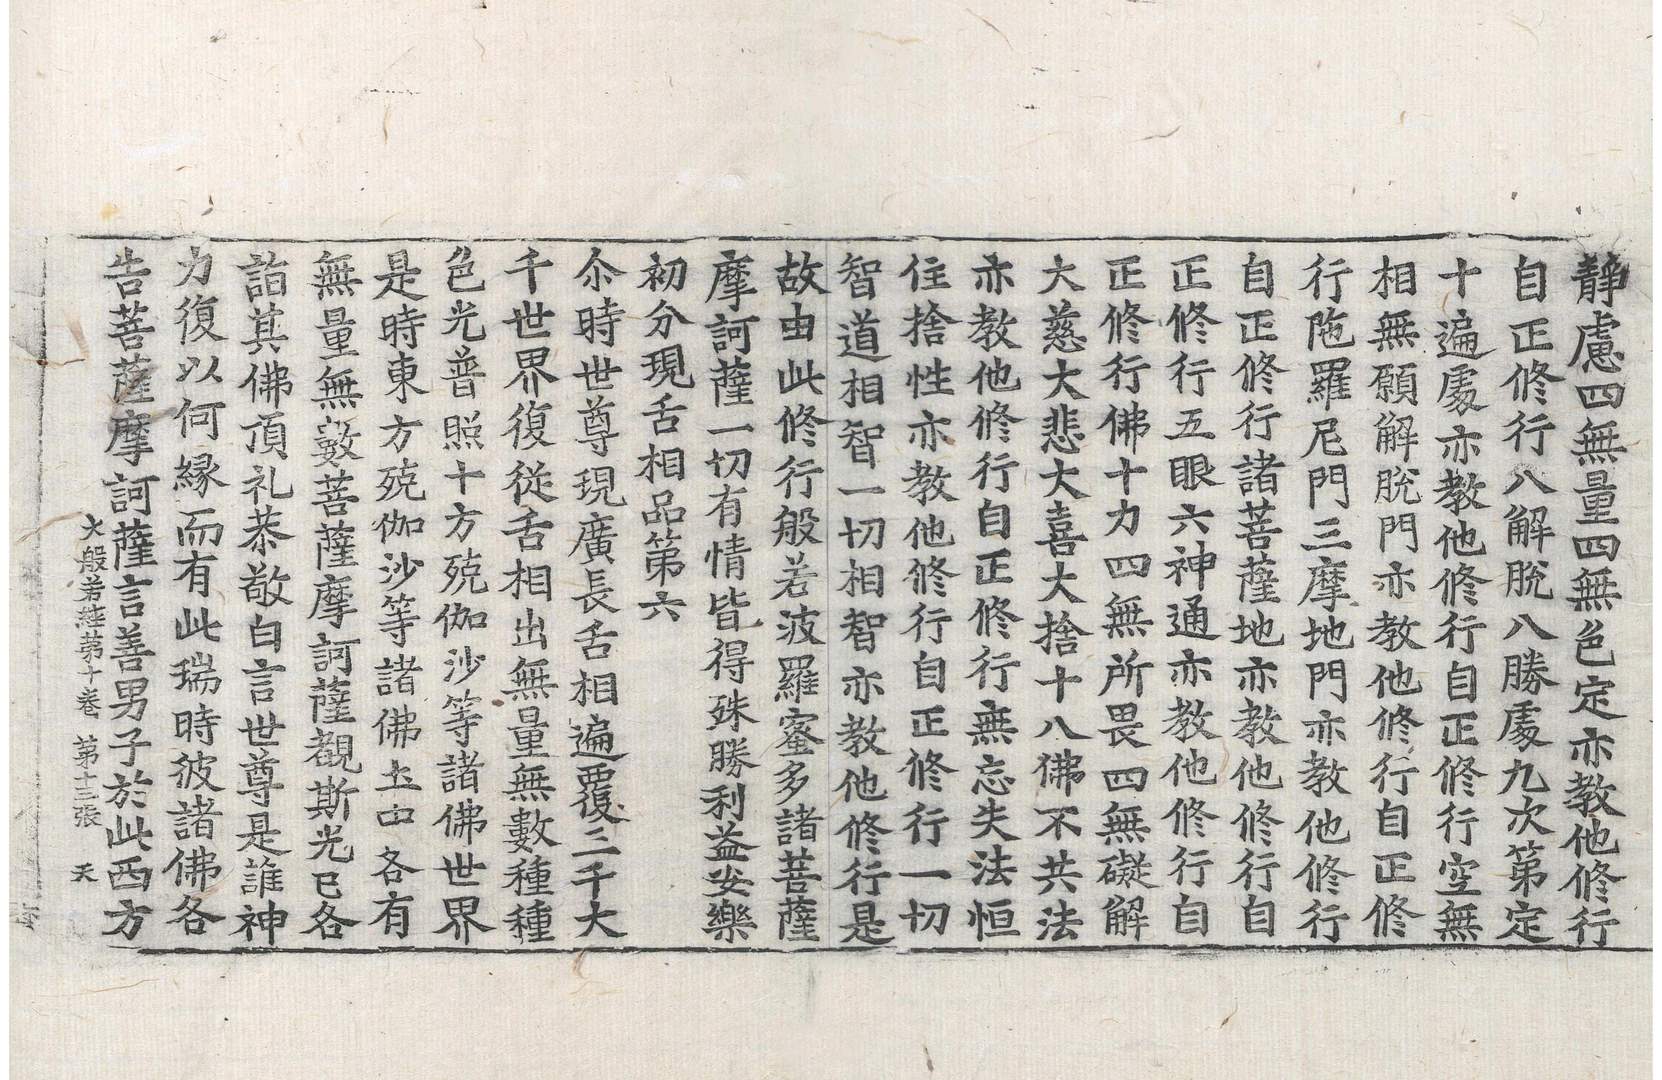 靜慮四無量四無色定亦教他修行
自正修行八解脫八勝處九次第定
十遍處亦教他修行自正修行空無
相無願解脫門亦教他修行自正修
行陁羅尼門三摩地門亦教他修行
自正修行諸菩薩地亦教他修行自
正修行五眼六神通亦教他修行自
正修行佛十力四無所畏四無礙解
大慈大悲大喜大捨十八佛不共法
亦教他修行自正修行無忘失法恒
住捨性亦教他修行自正修行一切
智道相智一切相智亦教他修行是
故由此修行般若波羅蜜多諸菩薩
摩訶薩一切有情皆得殊勝利益安樂
初分現舌相品第六
尒時世尊現廣長舌相遍覆三千大
千世界復從舌相出無量無數種種
色光普照十方殑伽沙等諸佛世界
是時東方殑伽沙等諸佛土中各有
無量無數菩薩摩訶薩覩斯光已各
詣其佛頂礼恭敬白言世尊是誰神
力復以何緣而有此瑞時彼諸佛各
告菩薩摩訶薩言善男子於此西方
大般若經第十卷 第十三張 天